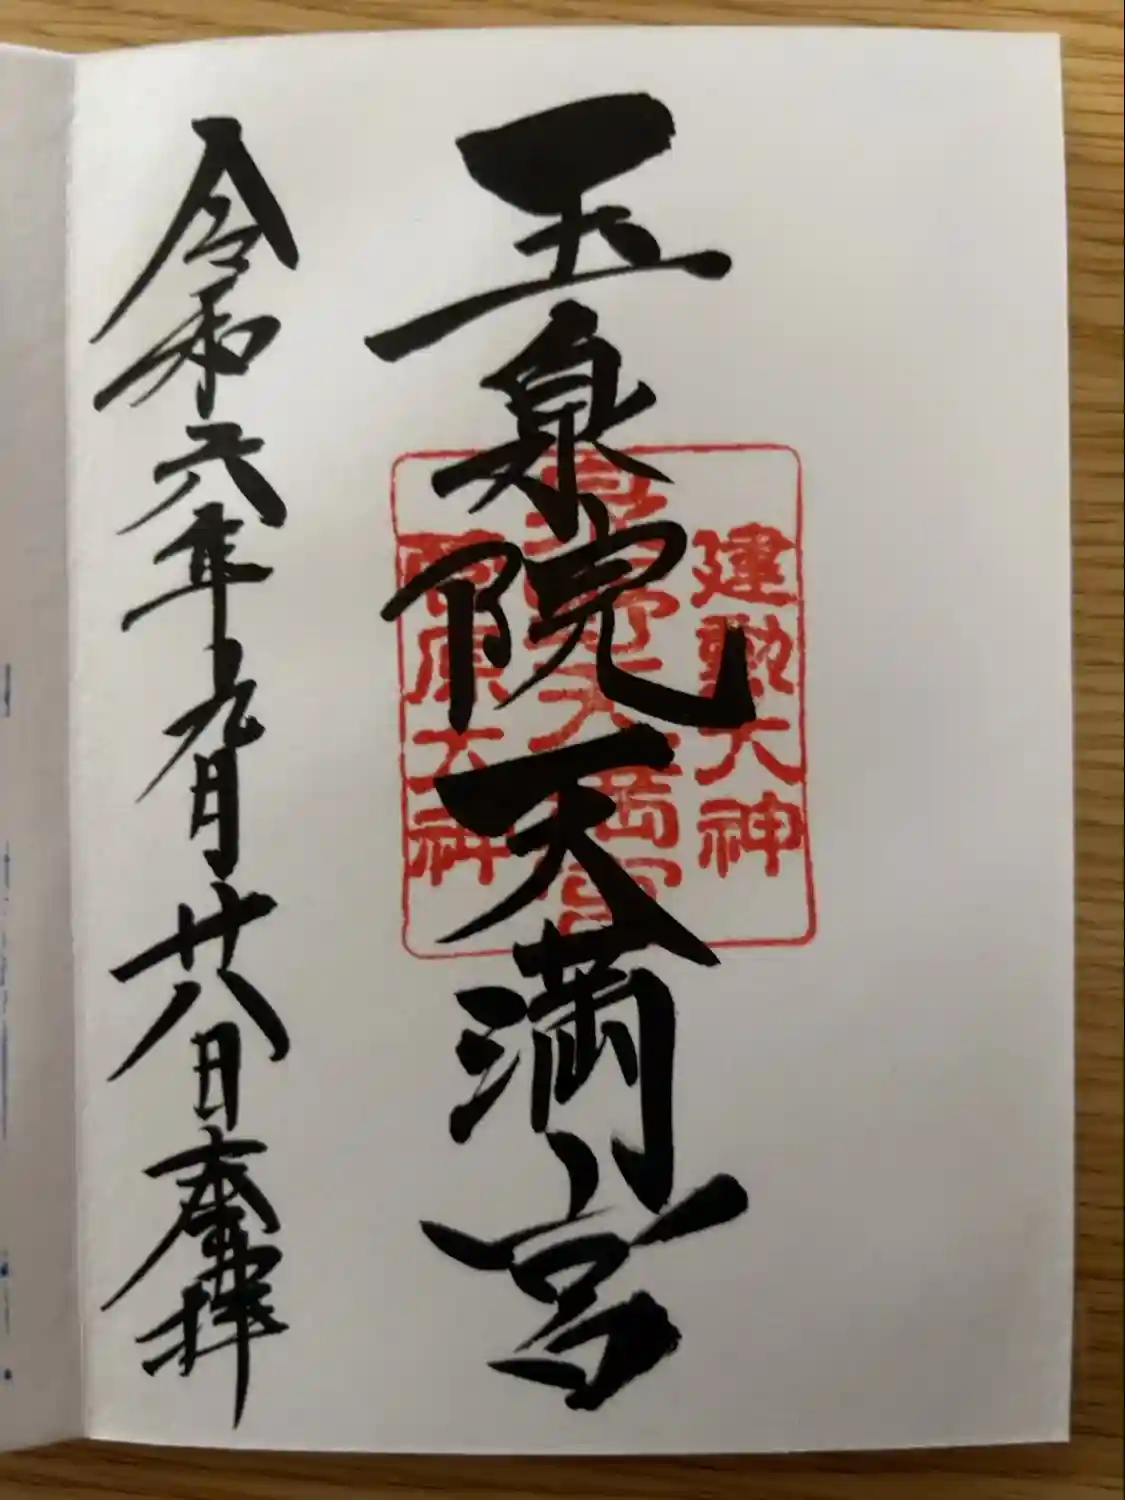 建勲大神
野天満宮
菅原大神
玉泉院天満宮
令和六年九月廿八日奉拝